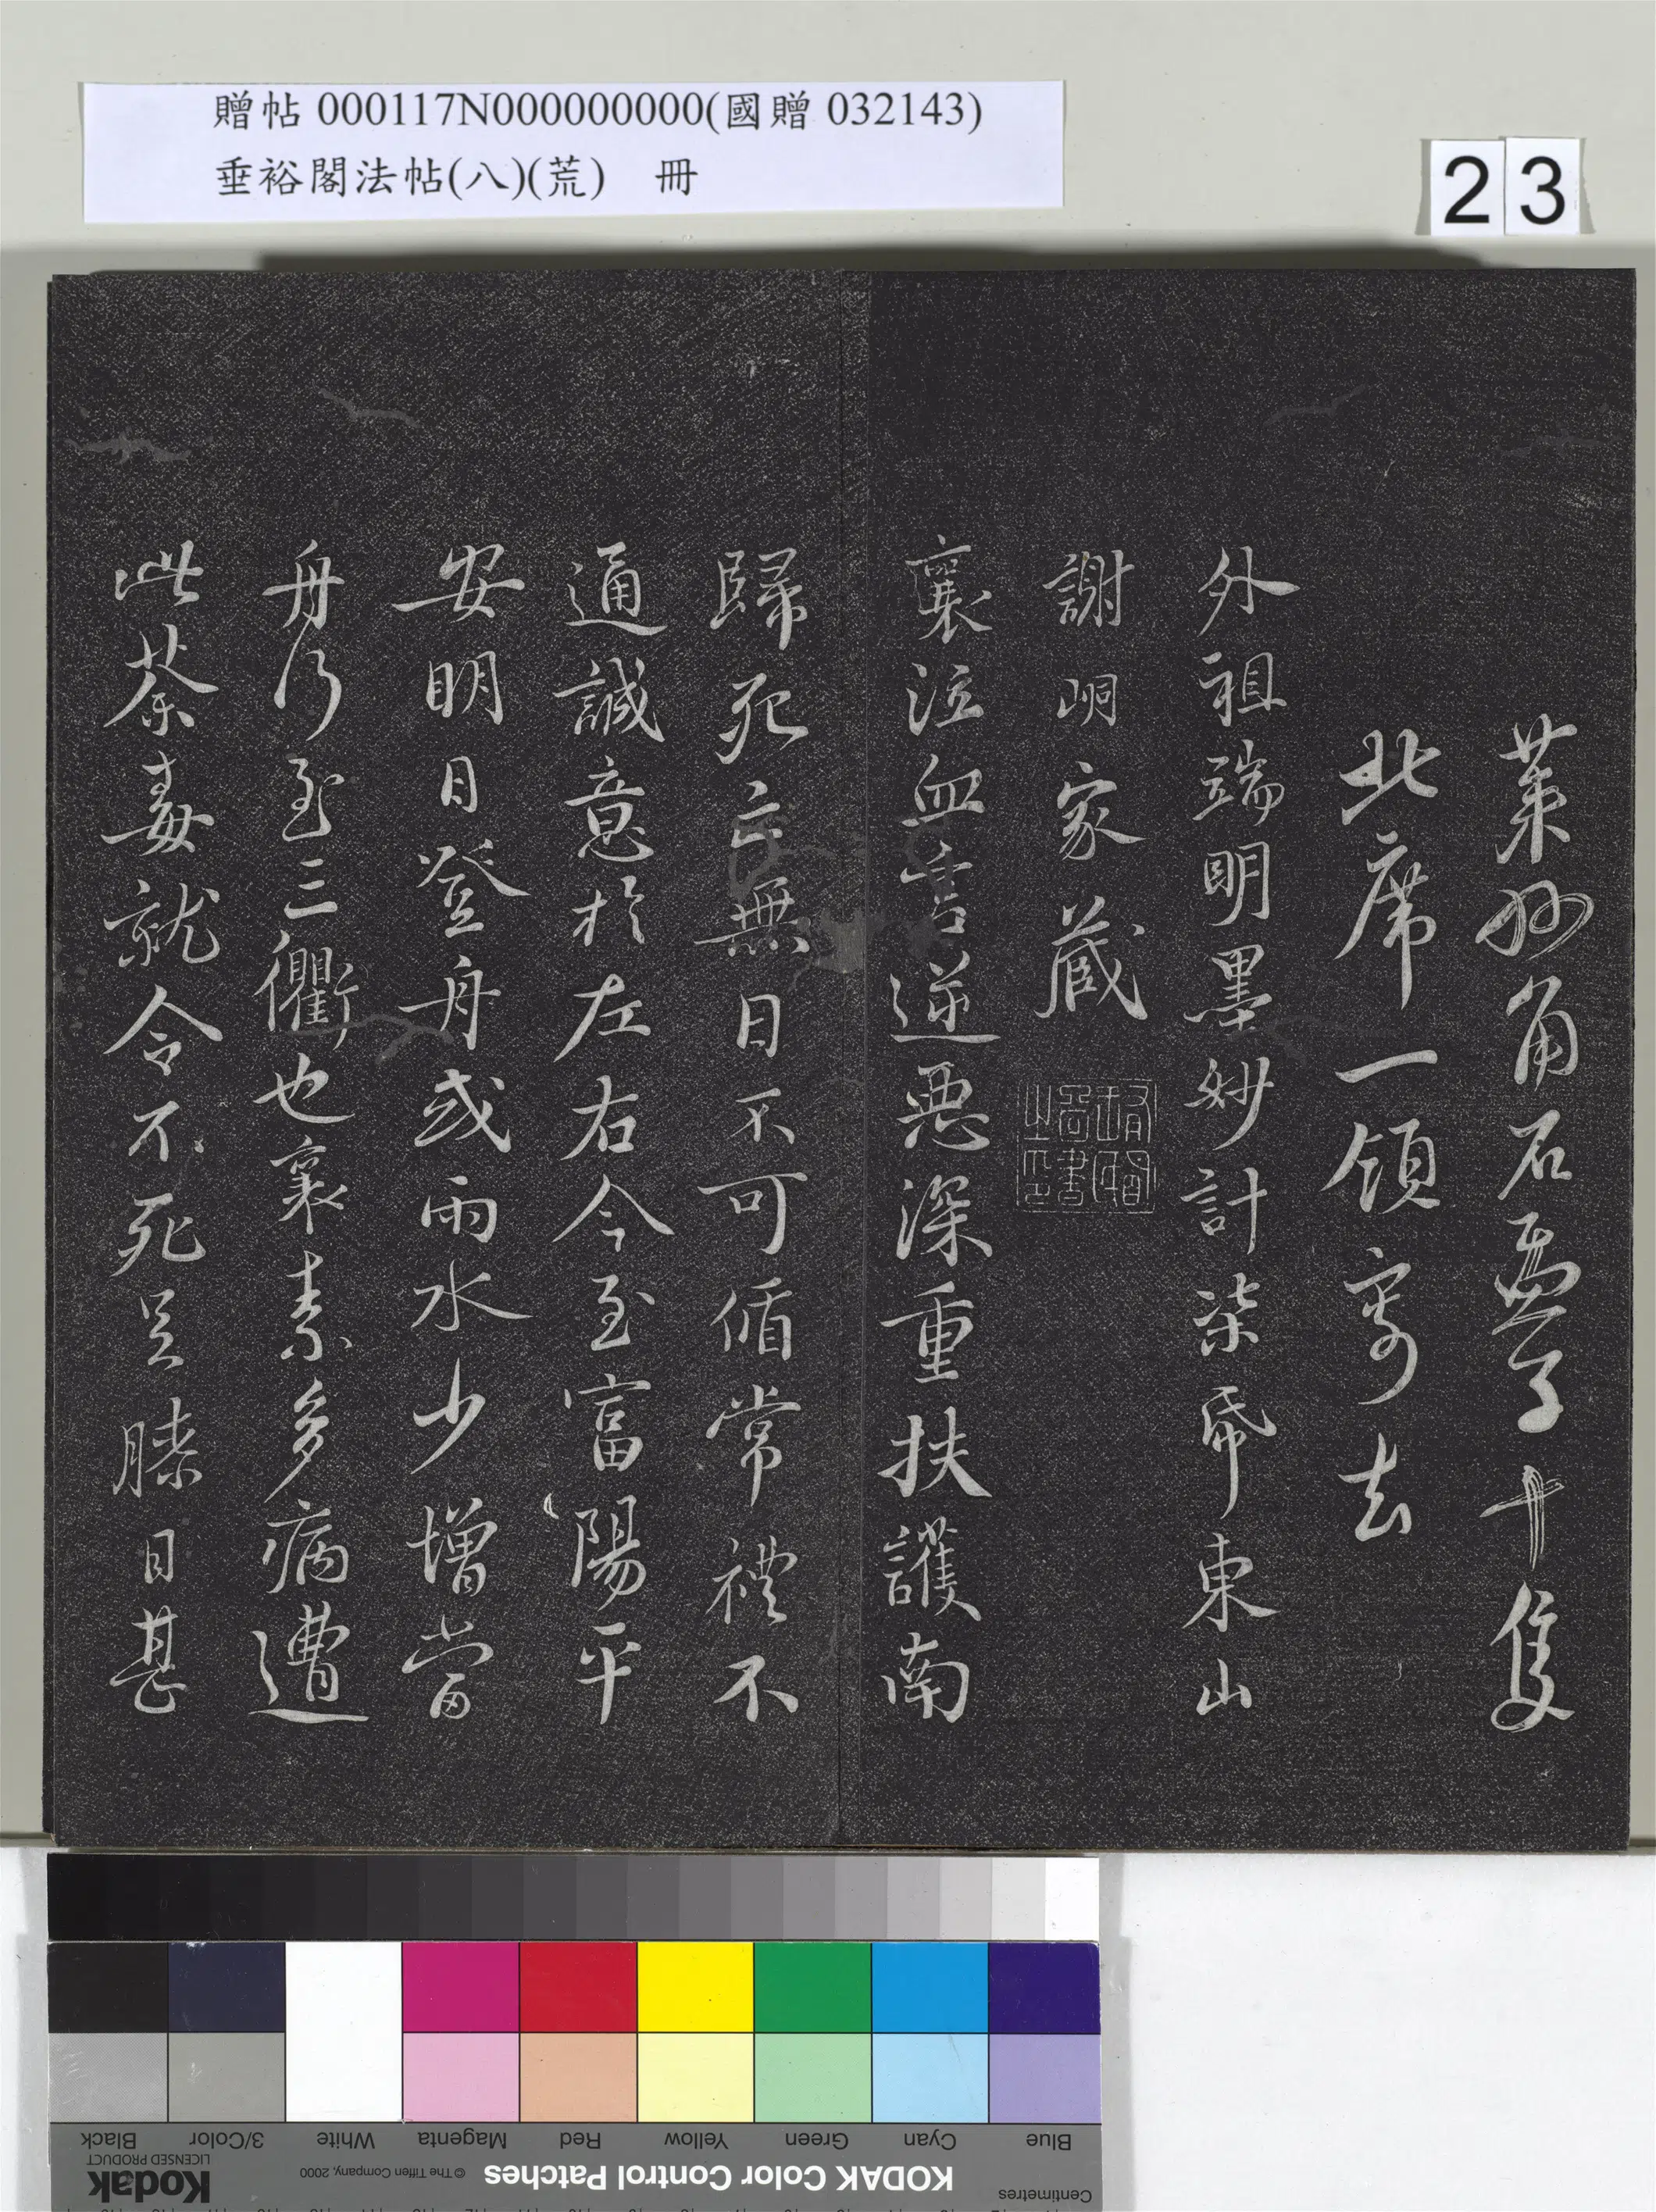 贈帖 000117N000000000(國贈 032143)
垂裕閣法帖(八)(荒) 冊
23
石 十隻
北席一領寄去
外祖端明墨妙計柒帋東山
謝峒家藏
襄泣血言逆惡深重扶護南
歸死亡無日不可循常禮不
通誠意於左右今至富陽平
安明日登舟或雨水少增當
舟行至三衢也襄素多病遭
此荼毒就令不死足膝日甚
Centimetres
KODAK Color Control Patches
© The Tiffen Company, 2000
Kodak
LICENSED PRODUCT
Blue Cyan Green Yellow Red Magenta White 3/Color Black